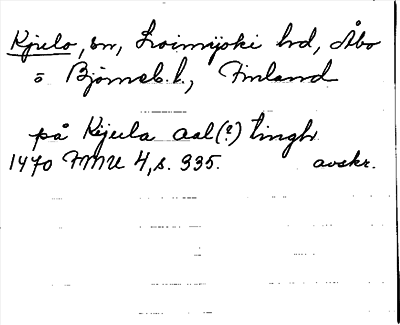 Kjulo, sn, Loimijoki hd, Åbo
o Björneb. l., Finland
på Kijula aal(?) tingh
1470 FMU 4, s. 335. avskr.